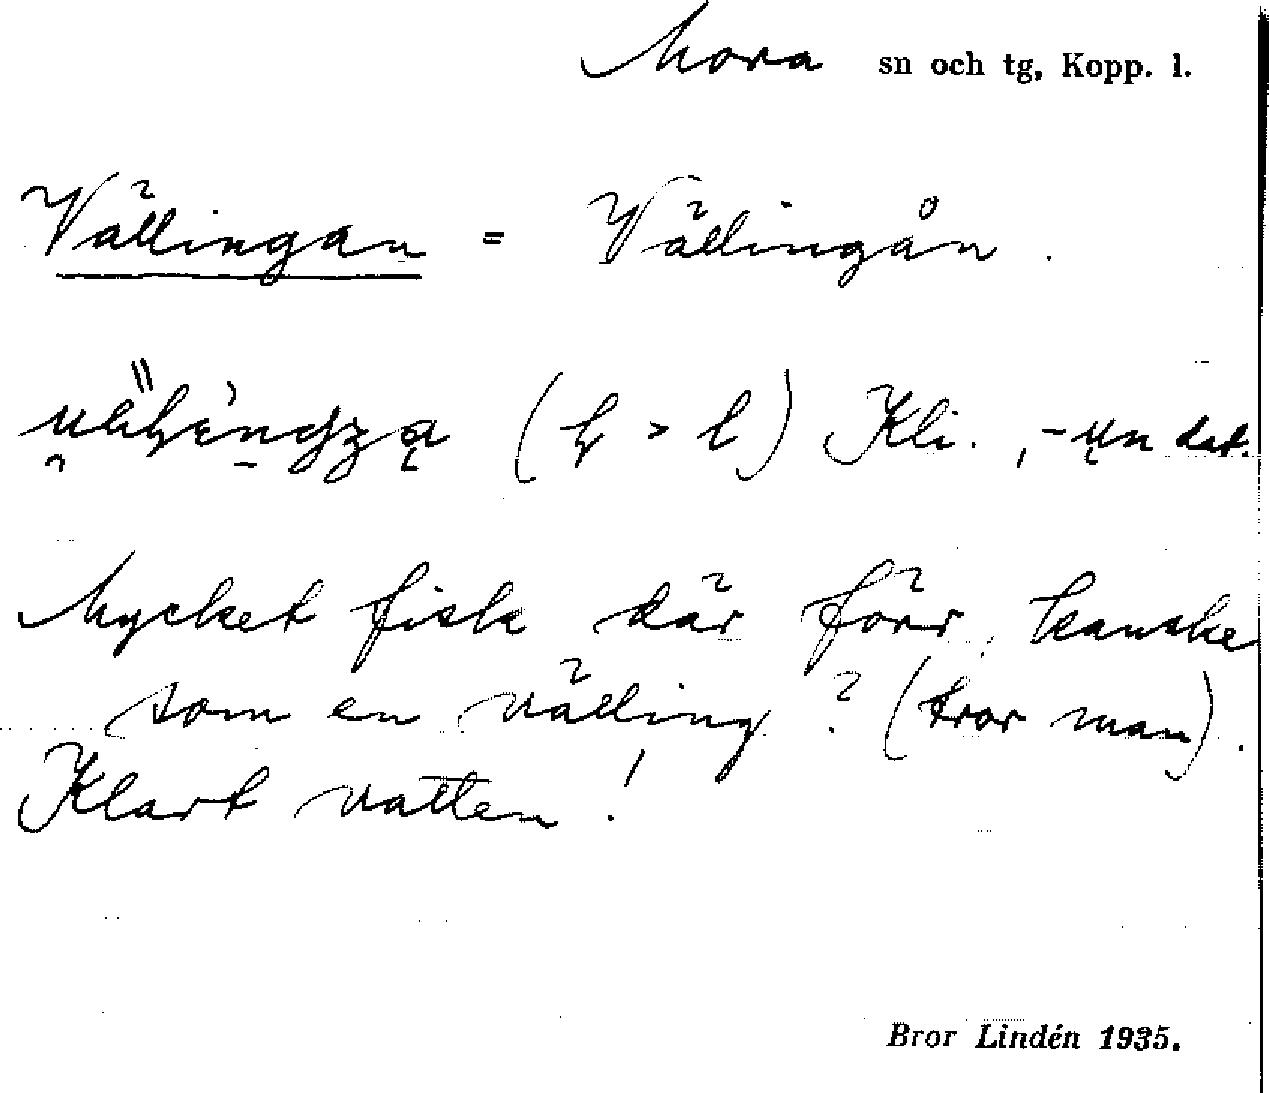 Mora sn och tg, Kopp. l.
Vällingan = Vällingån.
( > l) Kli., -un dat.
Mycket fisk där förr, kanske
som en välling? (tror man).
Klart vatten!
Bror Lindén 1935.